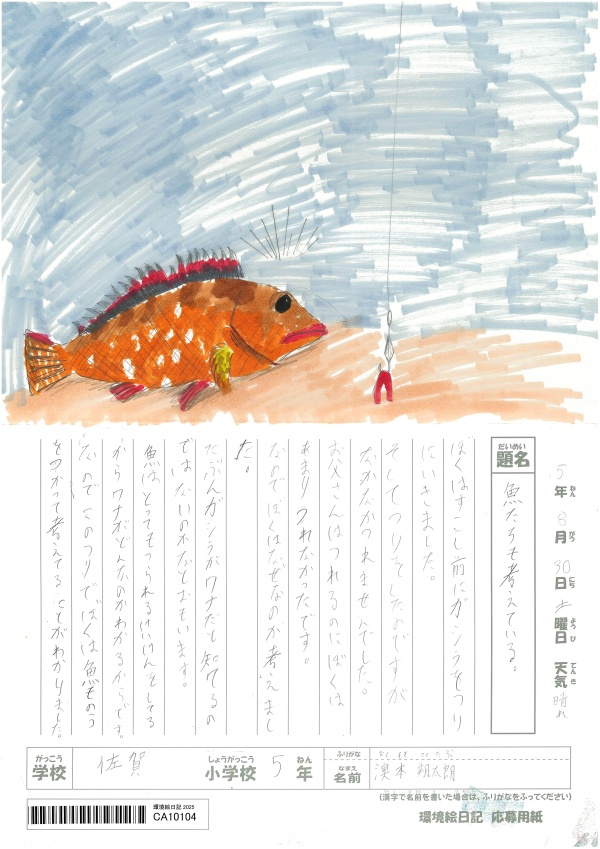 5年 8月 30日 土曜日 天気 晴れ
ねん がつ にち ようび てんき
だいめい
題名
魚たちも考えている。
ぼくはすこし前にガシラをつり
にいきました。
そしてつりをしたのですが
なかなかつれませんでした。
お父さんはつれるのにぼくは
あまりつれなかったです。
なのでぼくはなぜなのか考えまし
た。
たぶんガシラがワナだと知ってるの
ではないのかなとおもいます。
魚はとってもつられるけいけんをしてる
からワナがどんなのかわかるからです。
なのでこのつりでぼくは魚ものう
をつかって考えてることがわかりました。
がっこう
学校
佐賀
しょうがっこう
小学校
5
ねん
年
ふりがな
なまえ
名前
本 朔太朗
(漢字で名前を書いた場合は、ふりがなをふってください)
環境絵日記 2025
CA10104
環境絵日記 応募用紙